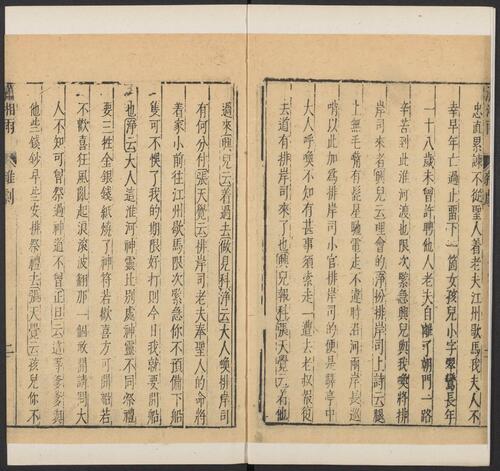 忠直累諫不從聖人着老夫江州歇馬我夫人不
幸早年亡過止留下一箇女孩兒小字翠鸞長年
一十八歲未曾許聘他人老夫自離了朝門一路
辛苦到此淮河渡也限次緊急興兒與我喚將排
岸司來者興兒云理會的淨扮排岸司上詩云腿
上無毛嘴有髭星馳電走不違時沿河兩岸長巡
哨以此加爲排岸司小官排岸司的便是驛亭中
大人呼喚不知有甚事須索走一遭去老叔報復
去道有排岸司來了也興兒報科張天覺云着他
過來興兒云着過去做見科淨云大人喚排岸司
有何分付張天覺云排岸司老夫奉聖人的命將
着家小前往江州歇馬限次緊急你不預備下船
隻可不悞了我的期限好打則今日我就要開船
也淨云大人這淮河神靈比別處神靈不同祭禮
要三牲金銀錢紙燒了神符若歡喜方可開船若
不歡喜狂風亂起浪滾波翻那一個敢開請問大
人不知可曾祭過神道不曾正旦云這等爹爹與
他些錢鈔早些安排祭禮去張天覺云孩兒你不
瀟湘雨
雜劇
二